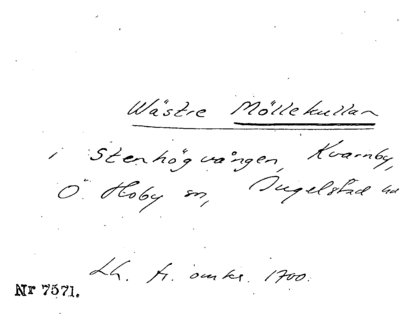 Wästre Möllekullan
i Stenhögvången, Kvarnby,
Ö Hoby sn, Ingelstad hd
Lh. fr. omkr. 1700.
Nr 7571.